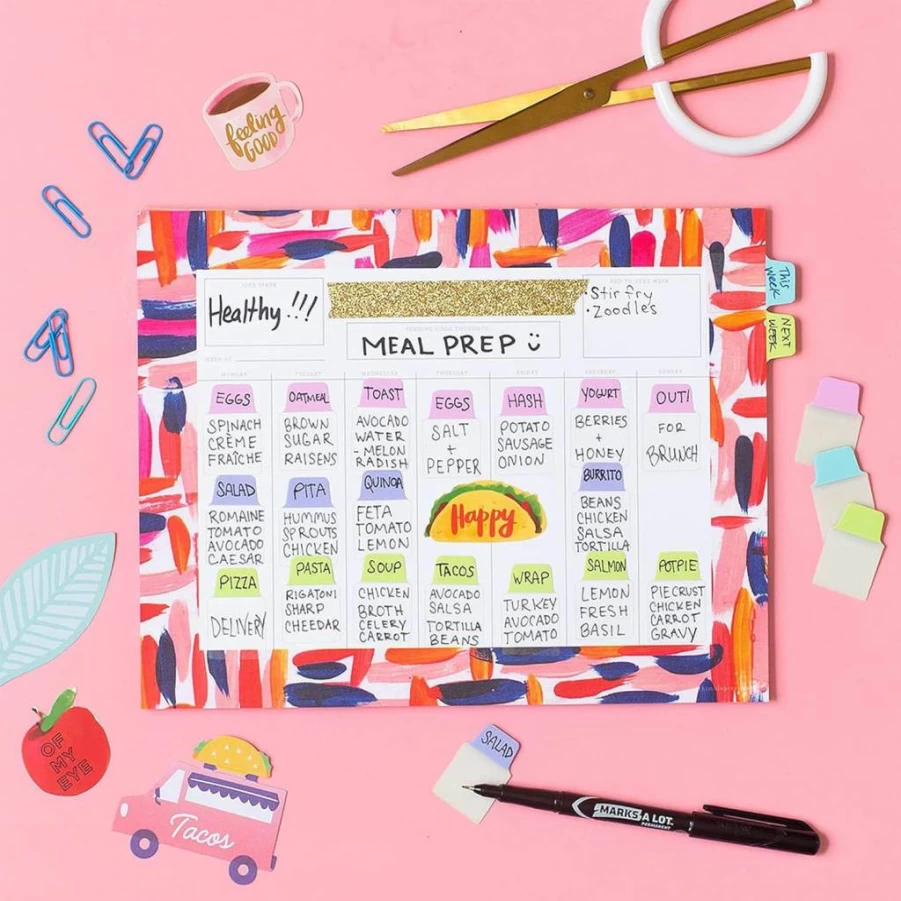 feeling
GOOD
This
Week
NEXT
WEEK
Healthy !!!
WEEK OF
• Stir fry
• Zoodles
MEAL PREP
MONDAY
TUESDAY
WEDNESDAY
THURSDAY
FRIDAY
SATURDAY
SUNDAY
EGGS
SPINACH
CRÈME
FRAÎCHE
OATMEAL
BROWN
SUGAR
RAISENS
TOAST
AVOCADO
WATER
-MELON
RADISH
EGGS
SALT
+
PEPPER
HASH
POTATO
SAUSAGE
ONION
YOGURT
BERRIES
+
HONEY
OUT!
FOR
BRUNCH
SALAD
ROMAINE
TOMATO
AVOCADO
CAESAR
PITA
HUMMUS
SPROUTS
CHICKEN
QUINOA
FETA
TOMATO
LEMON
Happy
BURRITO
BEANS
CHICKEN
SALSA
TORTILLA
PIZZA
DELIVERY
PASTA
RIGATONI
SHARP
CHEEDAR
SOUP
CHICKEN
BROTH
CELERY
CARROT
TACOS
AVOCADO
SALSA
TORTILLA
BEANS
WRAP
TURKEY
AVOCADO
TOMATO
SALMON
LEMON
FRESH
BASIL
POTPIE
PIECRUST
CHICKEN
CARROT
GRAVY
OF
MY
EYE
Tacos
SALAD
MARKS-A-LOT
PERMANENT